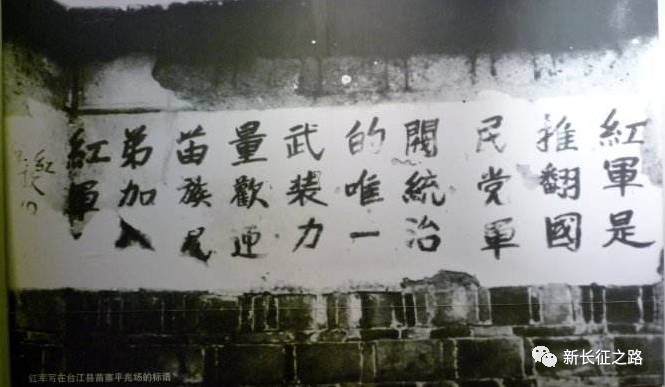 紅軍是
推翻國
民党軍
閥統治
的唯一
武裝力
量歡迎
苗族兄
弟加入
紅軍
紅
红军写在台江县苗寨平兆场的标语
新长征之路